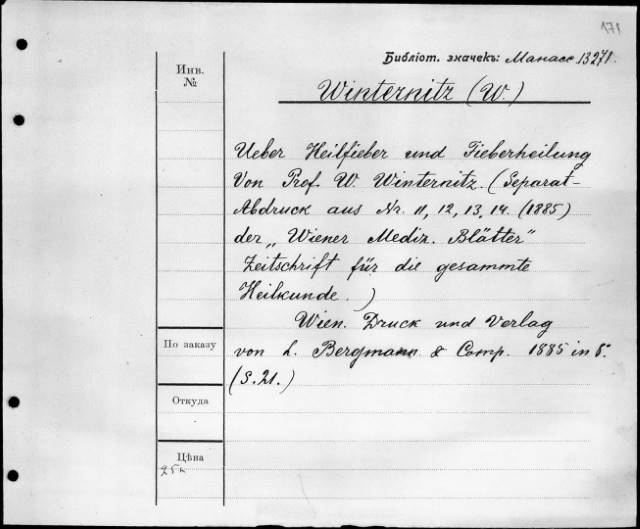 171
Библіот. значекъ: Манасс 13271.
Инв.
№
Winternitz (W.)
Ueber Heilfieber und Fieberheilung
Von Prof. W. Winternitz. (Separat-
Abdruck aus Nr. 11, 12, 13, 14. (1885)
der „Wiener Mediz. Blätter"
Zeitschrift für die gesammte
Heilkunde.)
Wien. Druck und Verlag
von L. Bergmann & Comp. 1885 in 8.
(S. 21.)
По заказу
Откуда
Цѣна
25к